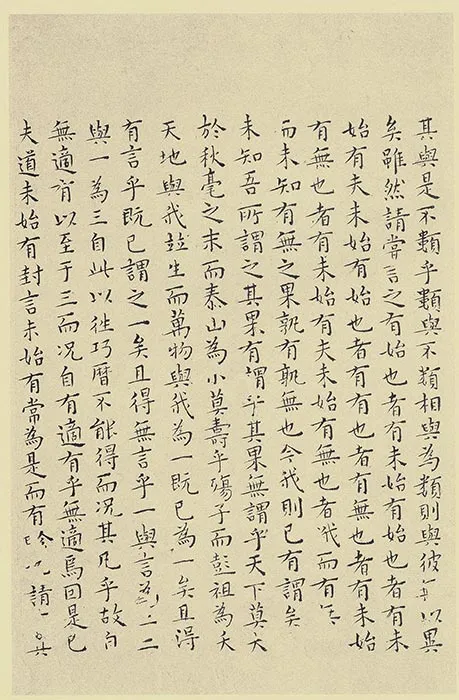 其與是不類乎類與不類相與為類則與彼無以異
矣雖然請嘗言之有始也者有未始有始也者有未
始有夫未始有始也者有有也者有無也者有未始
有無也者有未始有夫未始有無也者我而有
而未知有無之果孰有孰無也今我則已有謂矣
未知吾所謂之其果有謂乎其果無謂乎天下莫大
於秋毫之末而泰山為小莫壽乎殤子而彭祖為夭
天地與我並生而萬物與我為一既已為一矣且得
有言乎既已謂之一矣且得無言乎一與言為二二
與一為三自此以往巧曆不能得而況其凡乎故自
無適有以至于三而況自有適有乎無適焉因是已
夫道未始有封言未始有常為是而有畛也請其